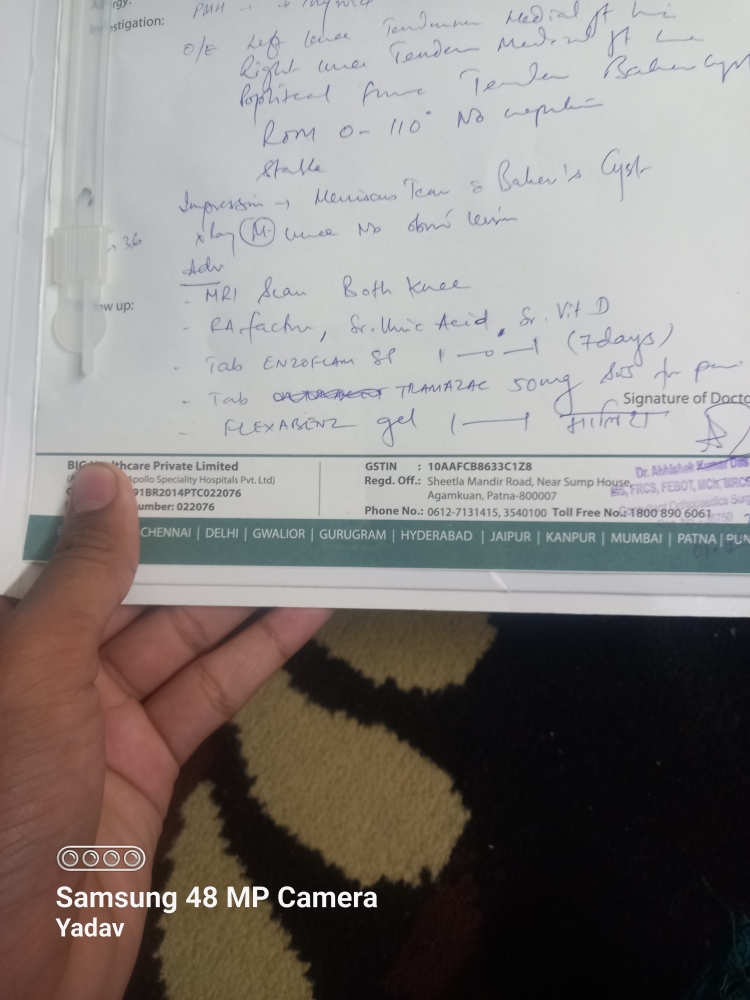 rgy:
PMH →
stigation:
O/E Left knee Tenderness Medial Jt line
Right knee Tender Medial Jt line
Popliteal fossa Tender Baker cyst
ROM 0 - 110°
Stable
Impression → Meniscus Tear Baker's Cyst
x Ray knee No
36
Adv
ow up:
- MRI Scan Both Knee
- RA factor, Sr. Uric Acid, Sr. Vit D
- Tab ENZOFLAM SP 1 — 0 — 1 (7 days)
- Tab TRAMAZAC 50mg SOS for pain
Signature of Docto
- FLEXABENZ gel 1 — 1 मालिश
BIG thcare Private Limited
Apollo Speciality Hospitals Pvt. Ltd)
91BR2014PTC022076
umber: 022076
GSTIN : 10AAFCB8633C1Z8
Regd. Off.: Sheetla Mandir Road, Near Sump House,
Agamkuan, Patna-800007
Phone No.: 0612-7131415, 3540100 Toll Free No.: 1800 890 6061
Dr. Abhishek Kumar Das
FRCS, FEBOT, MCh, MRCS
CHENNAI | DELHI | GWALIOR | GURUGRAM | HYDERABAD | JAIPUR | KANPUR | MUMBAI | PATNA | PUN
Samsung 48 MP Camera
Yadav